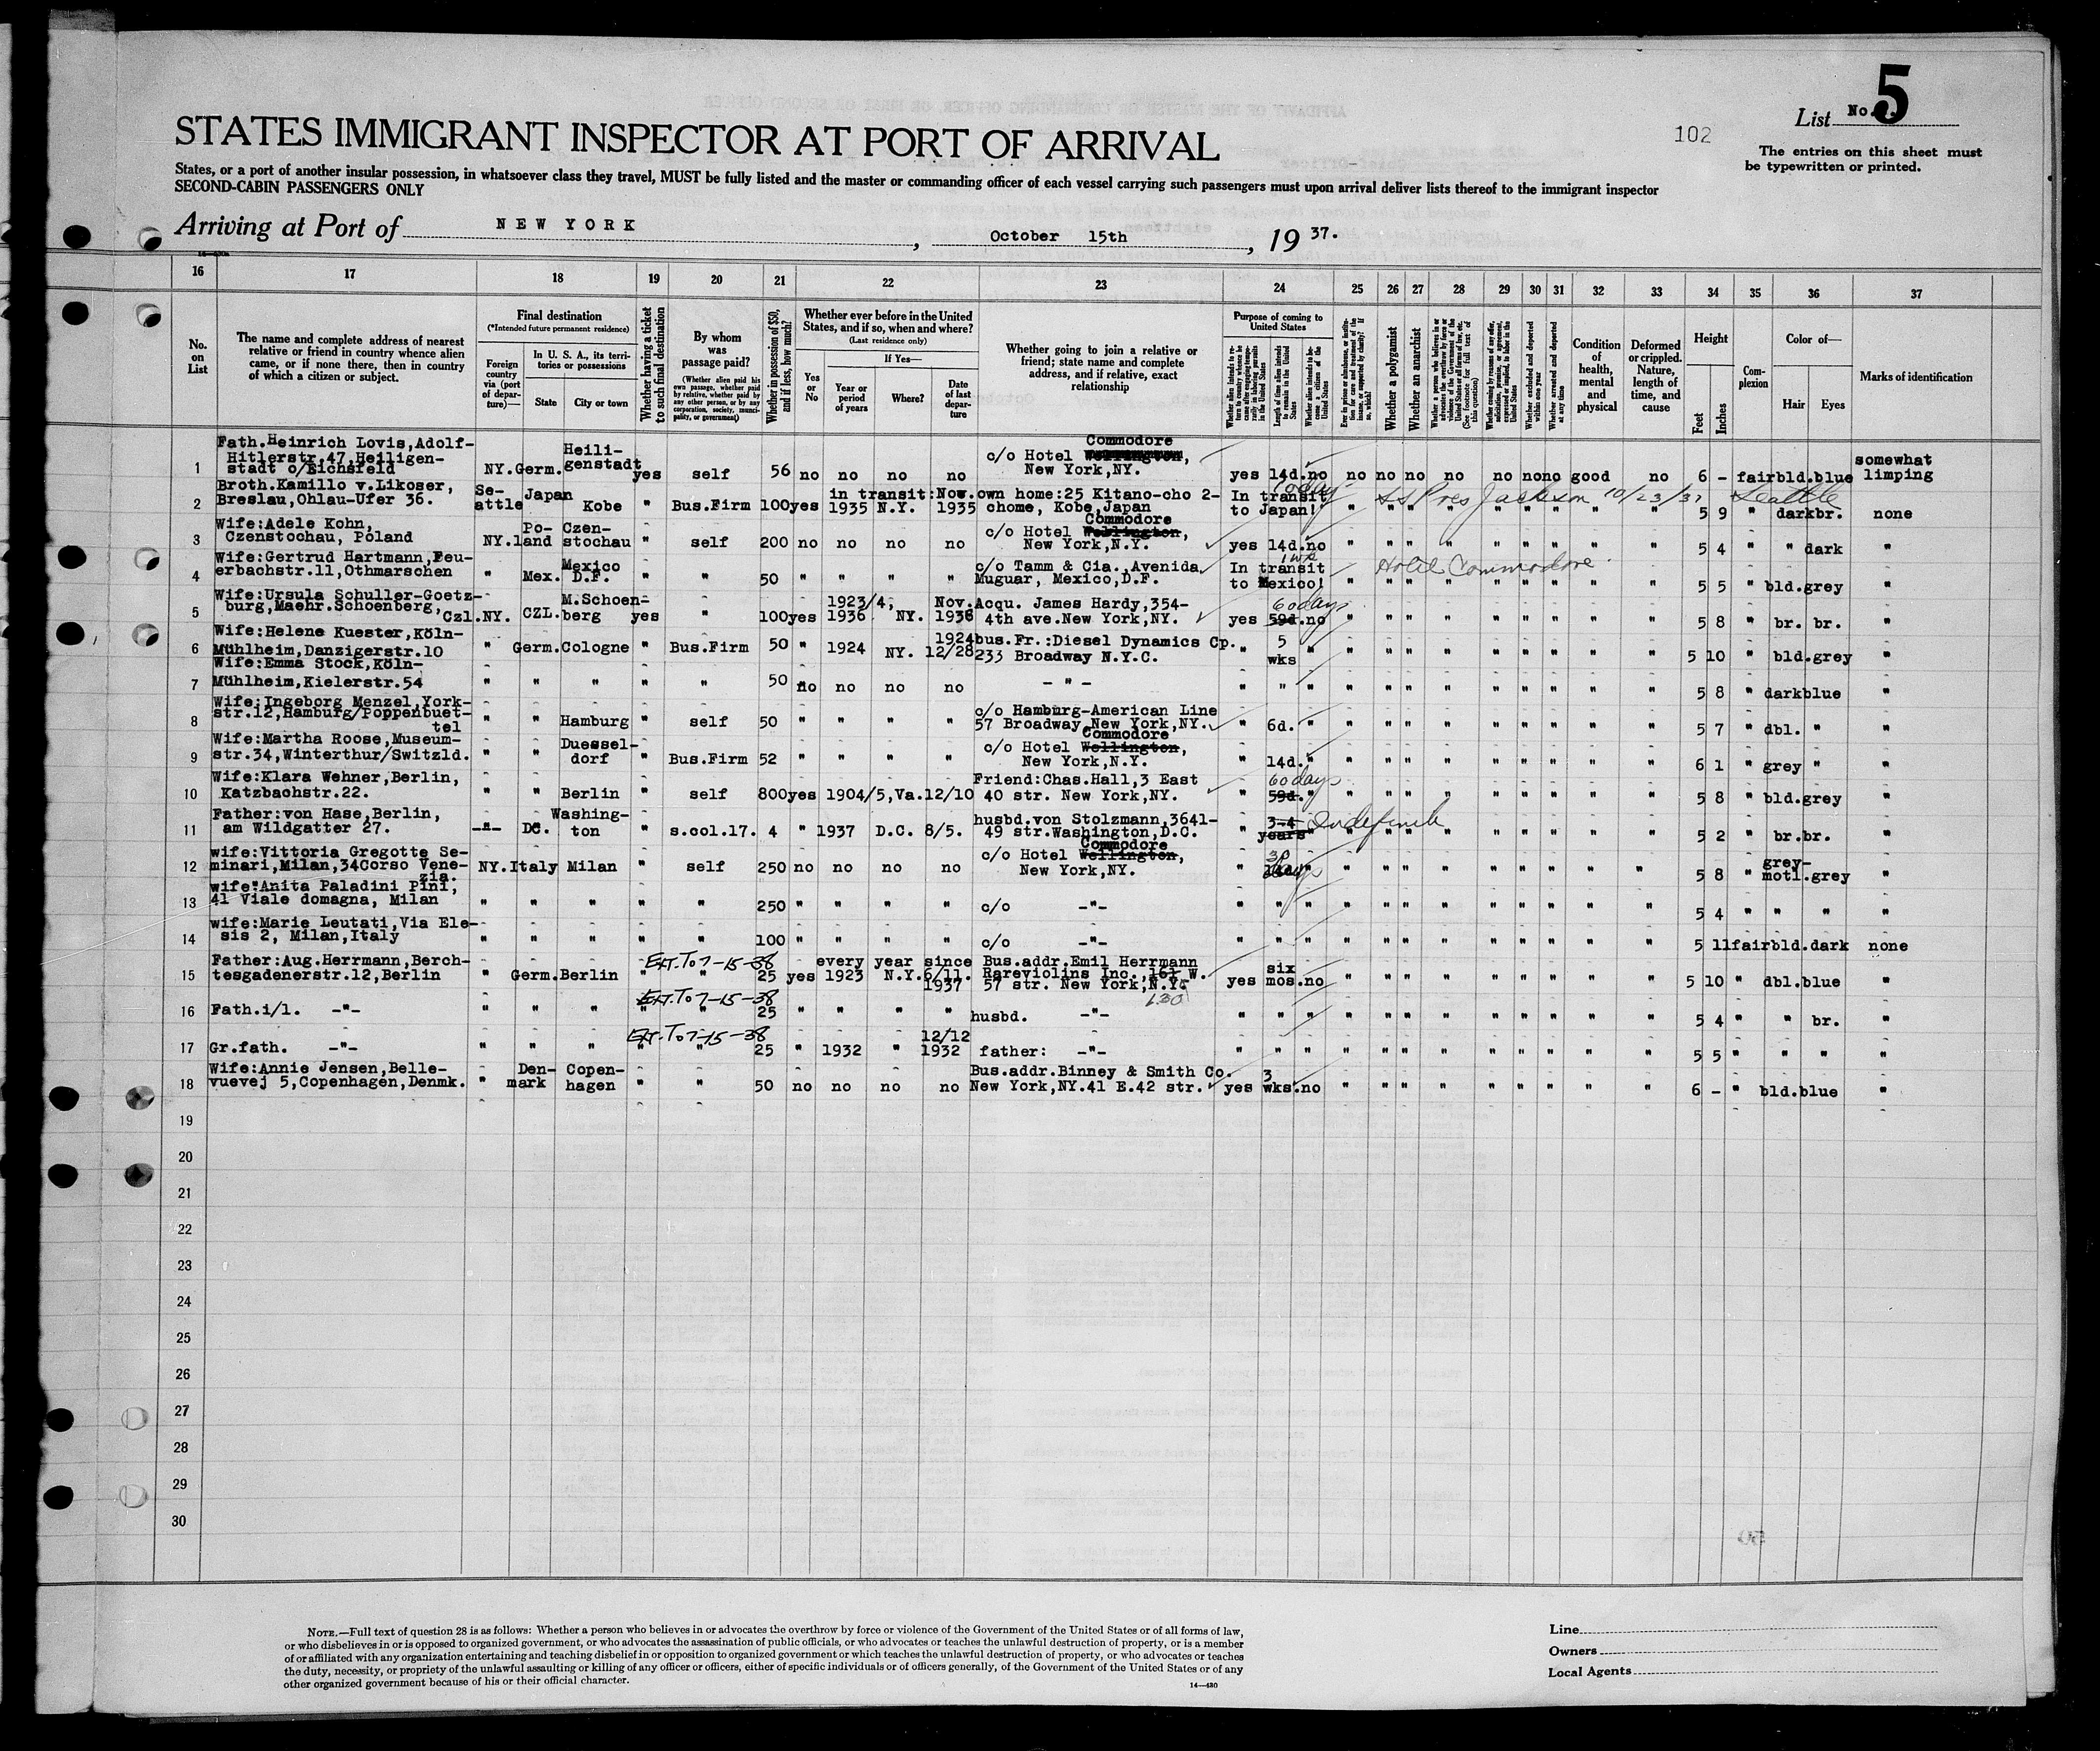 List No. 5
102
The entries on this sheet must
be typewritten or printed.
STATES IMMIGRANT INSPECTOR AT PORT OF ARRIVAL
States, or a port of another insular possession, in whatsoever class they travel, MUST be fully listed and the master or commanding officer of each vessel carrying such passengers must upon arrival deliver lists thereof to the immigrant inspector
SECOND-CABIN PASSENGERS ONLY
Arriving at Port of NEW YORK, October 15th, 19 37.
16 17 18 19 20 21 22 23 24 25 26 27 28 29 30 31 32 33 34 35 36 37
No. on List
The name and complete address of nearest
relative or friend in country whence alien
came, or if none there, then in country
of which a citizen or subject.
Final destination
(*Intended future permanent residence)
Foreign country via (port of departure)—
In U. S. A., its territories or possessions
State City or town
Whether having a ticket to such final destination
By whom was passage paid?
(Whether alien paid his own passage, whether paid by relative, whether paid by any other person, or by any corporation, society, municipality, or government)
Whether in possession of $50, and if less, how much?
Whether ever before in the United States, and if so, when and where?
(Last residence only)
Yes or No
If Yes—
Year or period of years
Where?
Date of last departure
Whether going to join a relative or
friend; state name and complete
address, and if relative, exact
relationship
Purpose of coming to United States
Length of time alien intends to remain in the United States
Whether a polygamist
Whether an anarchist
Whether excluded and deported within one year
Whether arrested and deported at any time
Condition of health, mental and physical
Deformed or crippled. Nature, length of time, and cause
Height
Feet Inches
Complexion
Color of—
Hair Eyes
Marks of identification
1 Fath.Heinrich Lovis,Adolf-
Hitlerstr.47,Heiligen-
stadt o/Eichsfeld NY. Germ. Heili-
genstadt yes self 56 no no no no c/o Hotel Commodore,
New York,NY. yes 14d. no no no no no no no no good no 6 - fair bld. blue somewhat
limping
2 Broth.Kamillo v.Likoser,
Breslau,Ohlau-Ufer 36. Se-
attle Japan Kobe " Bus.Firm 100 yes in transit:
1935 N.Y. Nov.
1935 own home:25 Kitano-cho 2-
chome, Kobe,Japan In transit
to Japan! SS Pres Jackson 10/23/37 Seattle " " " " " " " " " 5 9 " dark br. none
3 Wife:Adele Kohn,
Czenstochau, Poland NY. Po-
land Czen-
stochau " self 200 no no no no c/o Hotel Commodore Wellington,
New York,N.Y. yes 14d. no " " " " " " " " " 5 4 " " dark "
4 Wife:Gertrud Hartmann,Feu-
erbachstr.11,Othmarschen " Mex. Mexico
D.F. " " 50 " " " " c/o Tamm & Cia.,Avenida
Muguar, Mexico,D.F. In transit
to Mexico! Hotel Commodore " " " " " " " " " 5 5 " bld. grey "
5 Wife:Ursula Schuller-Goetz-
burg,Maehr.Schoenberg,
Czl. NY. CZL. M.Schoen-
berg yes " 100 yes 1923/4,
1936 NY. Nov.
1936 Acqu. James Hardy,354-
4th ave.New York,NY. yes 60 days 59d. no " " " " " " " " " 5 8 " br. br. "
6 Wife:Helene Kuester,Köln-
Mühlheim,Danzigerstr.10 " Germ. Cologne " Bus.Firm 50 " 1924 NY. 1924
12/28 bus.Fr.:Diesel Dynamics Cp.
233 Broadway N.Y.C. " 5
wks " " " " " " " " " " 5 10 " bld. grey "
7 Wife:Emma Stock,Köln-
Mühlheim,Kielerstr.54 " " " " " 50 no no no no -"- " " " " " " " " " " " " 5 8 " dark blue "
8 Wife:Ingeborg Menzel,York-
str.12,Hamburg/Poppenbuet-
tel " " Hamburg " self 50 " " " " c/o Hamburg-American Line
57 Broadway,New York,NY. " 6d. " " " " " " " " " " 5 7 " dbl. " "
9 Wife:Martha Roose,Museum-
str.34,Winterthur/Switzld. " " Duessel-
dorf " Bus.Firm 52 " " " " c/o Hotel Commodore Wellington,
New York,N.Y. " 14d. " " " " " " " " " " 6 1 " grey " "
10 Wife:Klara Wehner,Berlin,
Katzbachstr.22. " " Berlin " self 800 yes 1904/5,Va. 12/10 Friend:Chas.Hall,3 East
40 str. New York,NY. " 60 days 59d. " " " " " " " " " " 5 8 " bld. grey "
11 Father:von Hase,Berlin,
am Wildgatter 27. -"- DC. Washing-
ton " s.col.17. 4 " 1937 D.C. 8/5. husbd.von Stolzmann,3641-
49 str.Washington,D.C. " 3-4
years Indefinite " " " " " " " " " 5 2 " br. br. "
12 wife:Vittoria Gregotte Se-
minari,Milan,34Corso Vene-
zia. NY. Italy Milan " self 250 no no no no c/o Hotel Commodore Wellington,
New York,NY. " " " " " " " " " " " 5 8 " grey-
motl. grey "
13 wife:Anita Paladini Pini,
41 Viale domagna, Milan " " " " " 250 " " " " c/o -"- " " " " " " " " " " " " 5 4 " " " "
14 wife:Marie Leutati,Via Ele-
sis 2, Milan,Italy " " " " " 100 " " " " c/o -"- " " " " " " " " " " " " 5 11 fair bld. dark none
15 Father:Aug.Herrmann,Berch-
tesgadenerstr.12,Berlin " Germ. Berlin " EXT. TO 7-15-38 " 25 yes every year since
1923 N.Y. 6/11.
1937 Bus.addr.Emil Herrmann
Rareviolins Inc., 161 W.
57 str. New York,N.Y. 130 yes six
mos. no " " " " " " " " " 5 10 " dbl. blue "
16 Fath.i/l. -"- " " " " EXT. TO 7-15-38 " 25 " " " " husbd. -"- " " " " " " " " " " " " 5 4 " " br. "
17 Gr.fath. -"- " " " " EXT. TO 7-15-38 " 25 " 1932 " 12/12
1932 father: -"- " " " " " " " " " " " " 5 5 " " " "
18 Wife:Annie Jensen,Belle-
vuevej 5,Copenhagen,Denmk. " Den-
mark Copen-
hagen " " 50 no no no no Bus.addr.Binney & Smith Co.
New York,NY.41 E.42 str. yes 3
wks. no " " " " " " " " " 6 - " bld. blue "
19
20
21
22
23
24
25
26
27
28
29
30
NOTE.—Full text of question 28 is as follows: Whether a person who believes in or advocates the overthrow by force or violence of the Government of the United States or of all forms of law,
or who disbelieves in or is opposed to organized government, or who advocates the assassination of public officials, or who advocates or teaches the unlawful destruction of property, or is a member
of or affiliated with any organization entertaining and teaching disbelief in or opposition to organized government or which teaches the unlawful destruction of property, or who advocates or teaches
the duty, necessity, or propriety of the unlawful assaulting or killing of any officer or officers, either of specific individuals or of officers generally, of the Government of the United States or of any
other organized government because of his or their official character.
14—430
Line
Owners
Local Agents